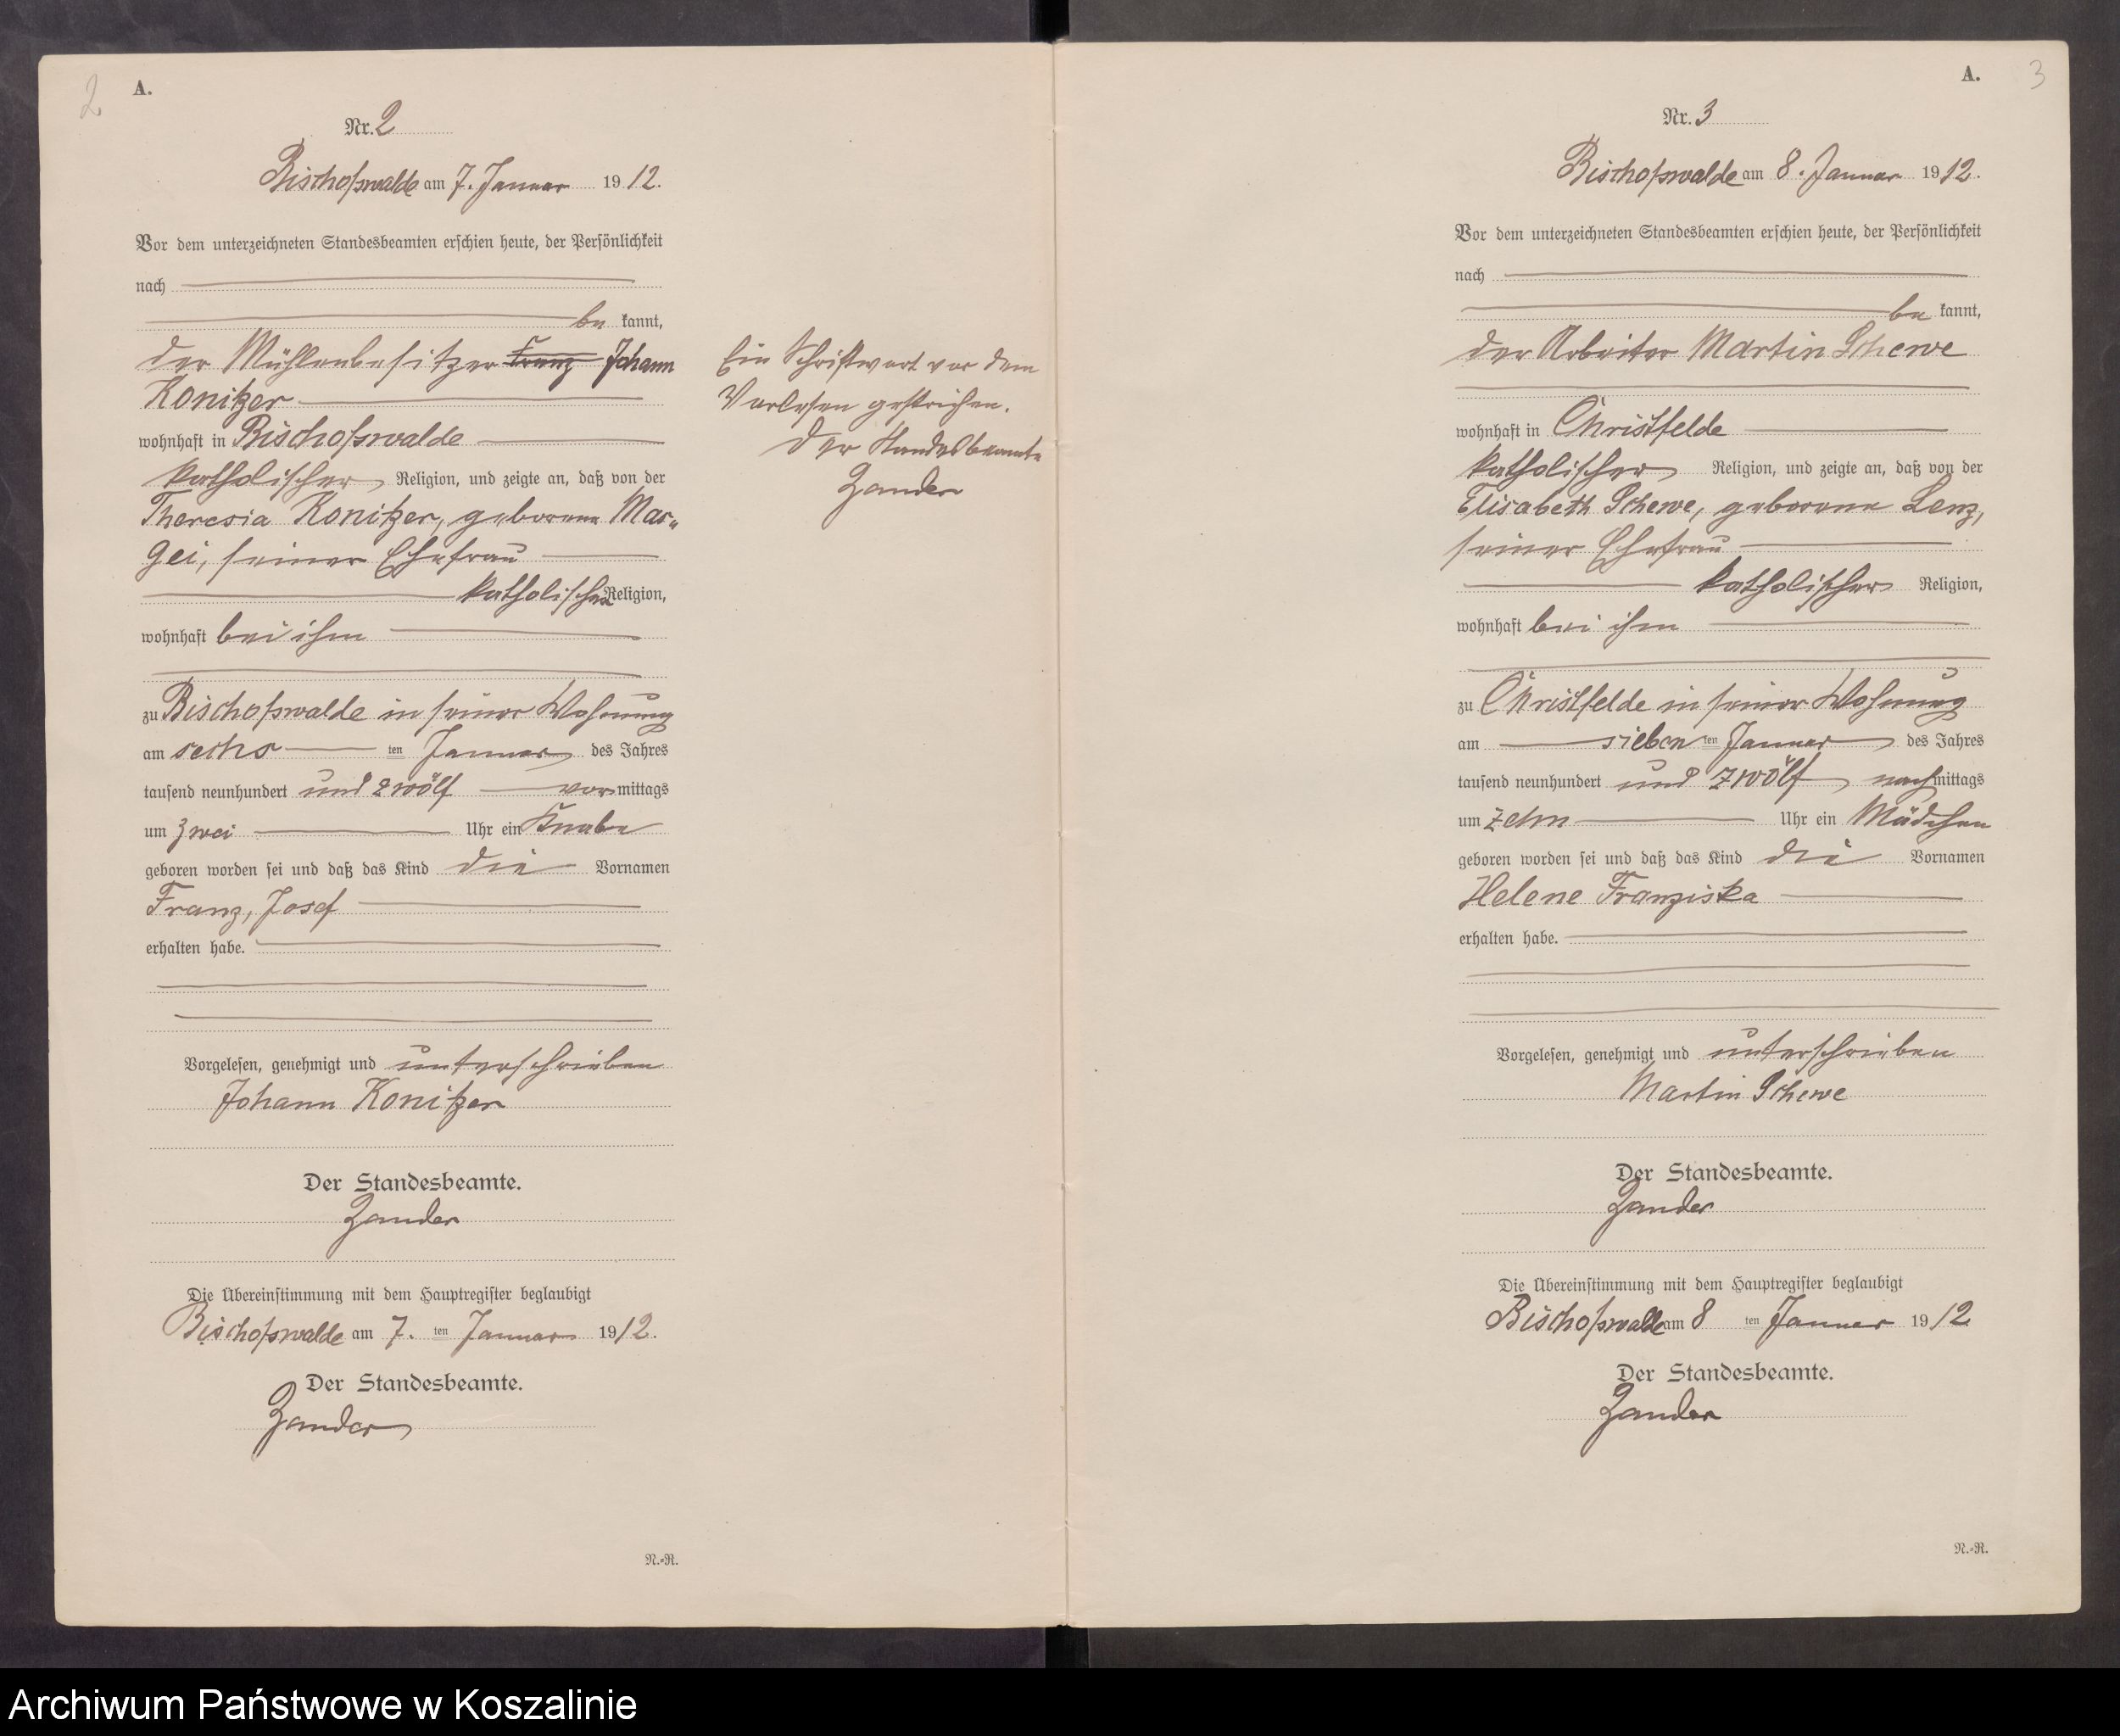 2
A.
Nr. 2
Bischofswalde am 7. Januar 1912.
Vor dem unterzeichneten Standesbeamten erschien heute, der Persönlichkeit
nach
be kannt,
der Mühlenbesitzer Franz Johann
Konitzer
wohnhaft in Bischofswalde
katholischer Religion, und zeigte an, daß von der
Theresia Konitzer, geborene Mar-
gei, seiner Ehefrau
katholischer Religion,
wohnhaft bei ihm
zu Bischofswalde in seiner Wohnung
am sechs ten Januar des Jahres
tausend neunhundert und zwölf vormittags
um zwei Uhr ein Knabe
geboren worden sei und daß das Kind die Vornamen
Franz, Josef
erhalten habe.
Vorgelesen, genehmigt und unterschrieben
Johann Konitzer
Der Standesbeamte.
Zander
Die Übereinstimmung mit dem Hauptregister beglaubigt
Bischofswalde am 7. ten Januar 1912.
Der Standesbeamte.
Zander
N.-R.
Ein Schriftwort vor dem
Vorlesen gestrichen.
Der Standesbeamte
Zander
A.
3
Nr. 3
Bischofswalde am 8. Januar 1912.
Vor dem unterzeichneten Standesbeamten erschien heute, der Persönlichkeit
nach
be kannt,
der Arbeiter Martin Schewe
wohnhaft in Christfelde
katholischer Religion, und zeigte an, daß von der
Elisabeth Schewe, geborene Lenz,
seiner Ehefrau
katholischer Religion,
wohnhaft bei ihm
zu Christfelde in seiner Wohnung
am sieben ten Januar des Jahres
tausend neunhundert und zwölf nachmittags
um zehn Uhr ein Mädchen
geboren worden sei und daß das Kind die Vornamen
Helene Franziska
erhalten habe.
Vorgelesen, genehmigt und unterschrieben
Martin Schewe
Der Standesbeamte.
Zander
Die Übereinstimmung mit dem Hauptregister beglaubigt
Bischofswalde am 8 ten Januar 1912
Der Standesbeamte.
Zander
N.-R.
Archiwum Państwowe w Koszalinie